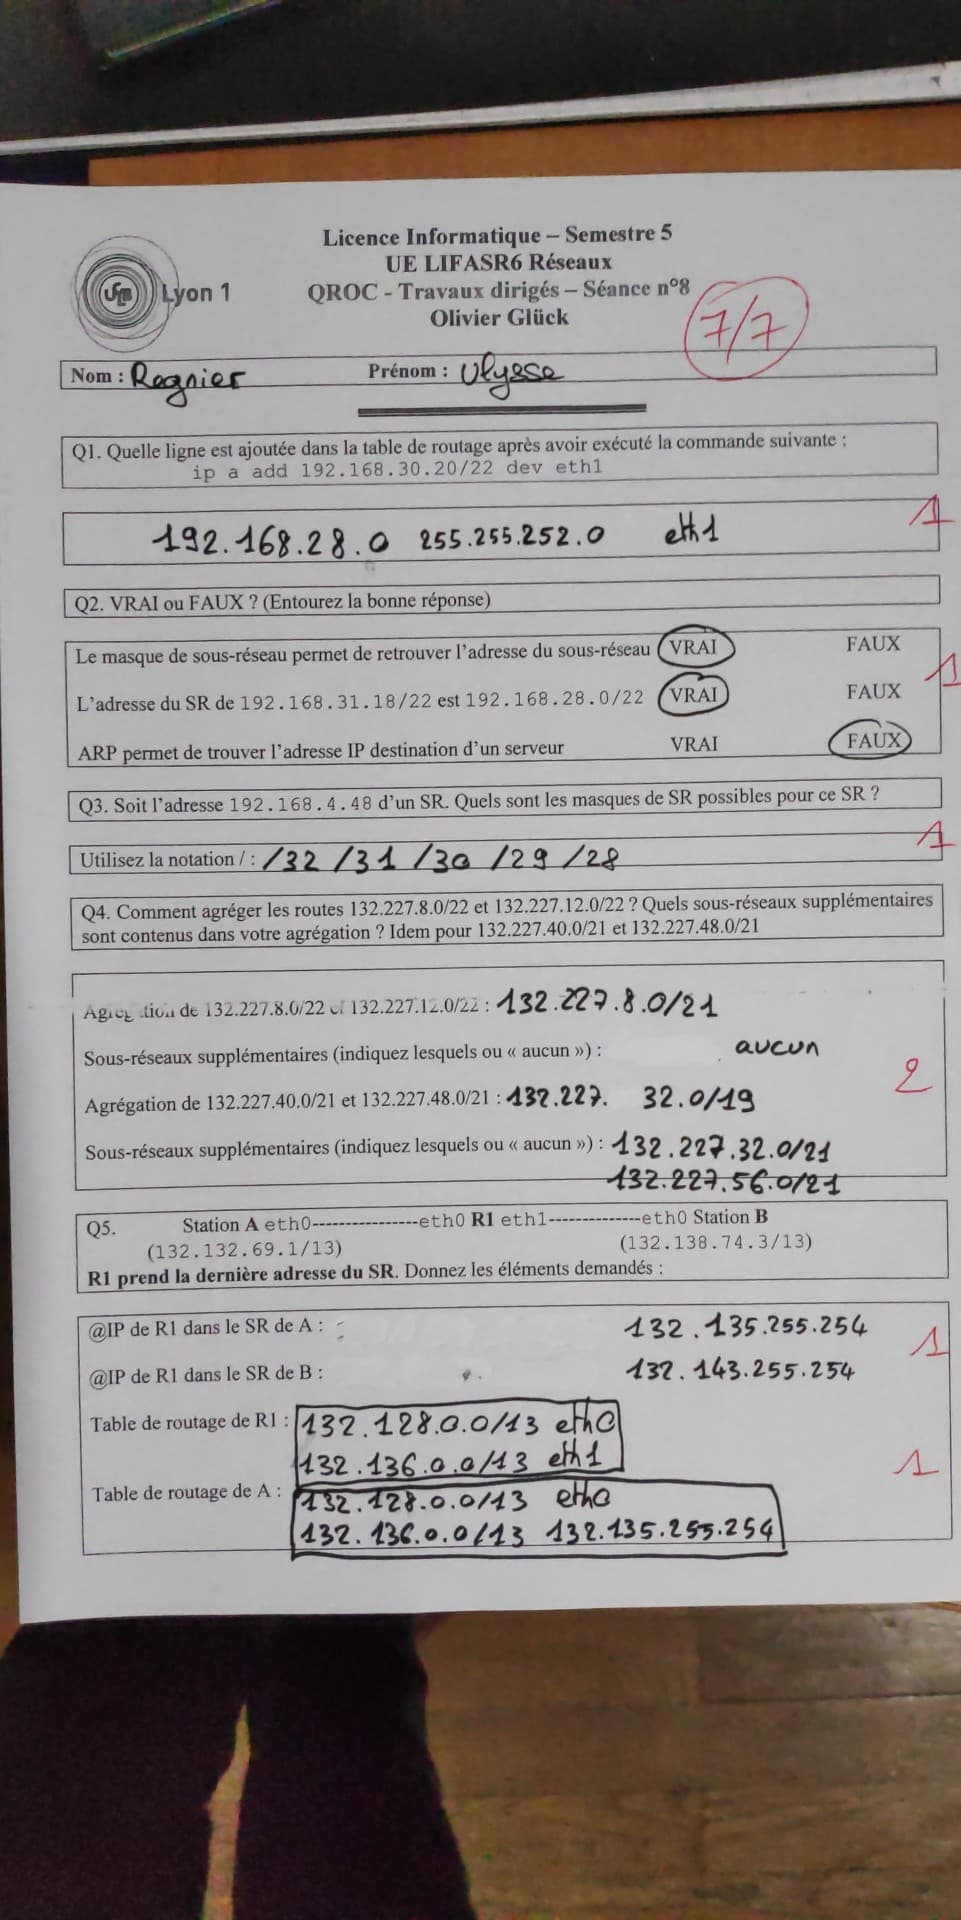 Licence Informatique – Semestre 5
UE LIFASR6 Réseaux
QROC - Travaux dirigés – Séance n°8
Olivier Glück
Lyon 1
7/7
Nom : Regnier Prénom : Ulysse
Q1. Quelle ligne est ajoutée dans la table de routage après avoir exécuté la commande suivante :
ip a add 192.168.30.20/22 dev eth1
192.168.28.0 255.255.252.0 eth1
1
Q2. VRAI ou FAUX ? (Entourez la bonne réponse)
Le masque de sous-réseau permet de retrouver l'adresse du sous-réseau VRAI FAUX
L'adresse du SR de 192.168.31.18/22 est 192.168.28.0/22 VRAI FAUX
1
ARP permet de trouver l'adresse IP destination d'un serveur VRAI FAUX
Q3. Soit l'adresse 192.168.4.48 d'un SR. Quels sont les masques de SR possibles pour ce SR ?
Utilisez la notation / : /32 /31 /30 /29 /28
1
Q4. Comment agréger les routes 132.227.8.0/22 et 132.227.12.0/22 ? Quels sous-réseaux supplémentaires
sont contenus dans votre agrégation ? Idem pour 132.227.40.0/21 et 132.227.48.0/21
de 132.227.8.0/22 et 132.227.12.0/22 : 132.227.8.0/21
Sous-réseaux supplémentaires (indiquez lesquels ou « aucun ») : aucun
2
Agrégation de 132.227.40.0/21 et 132.227.48.0/21 : 132.227. 32.0/19
Sous-réseaux supplémentaires (indiquez lesquels ou « aucun ») : 132.227.32.0/21
132.227.56.0/21
Q5. Station A eth0----------------eth0 R1 eth1--------------eth0 Station B
(132.132.69.1/13) (132.138.74.3/13)
R1 prend la dernière adresse du SR. Donnez les éléments demandés :
@IP de R1 dans le SR de A : 132.135.255.254
1
@IP de R1 dans le SR de B : 132.143.255.254
Table de routage de R1 : 132.128.0.0/13 eth0
132.136.0.0/13 eth1
1
Table de routage de A : 132.128.0.0/13 eth0
132.136.0.0/13 132.135.255.254